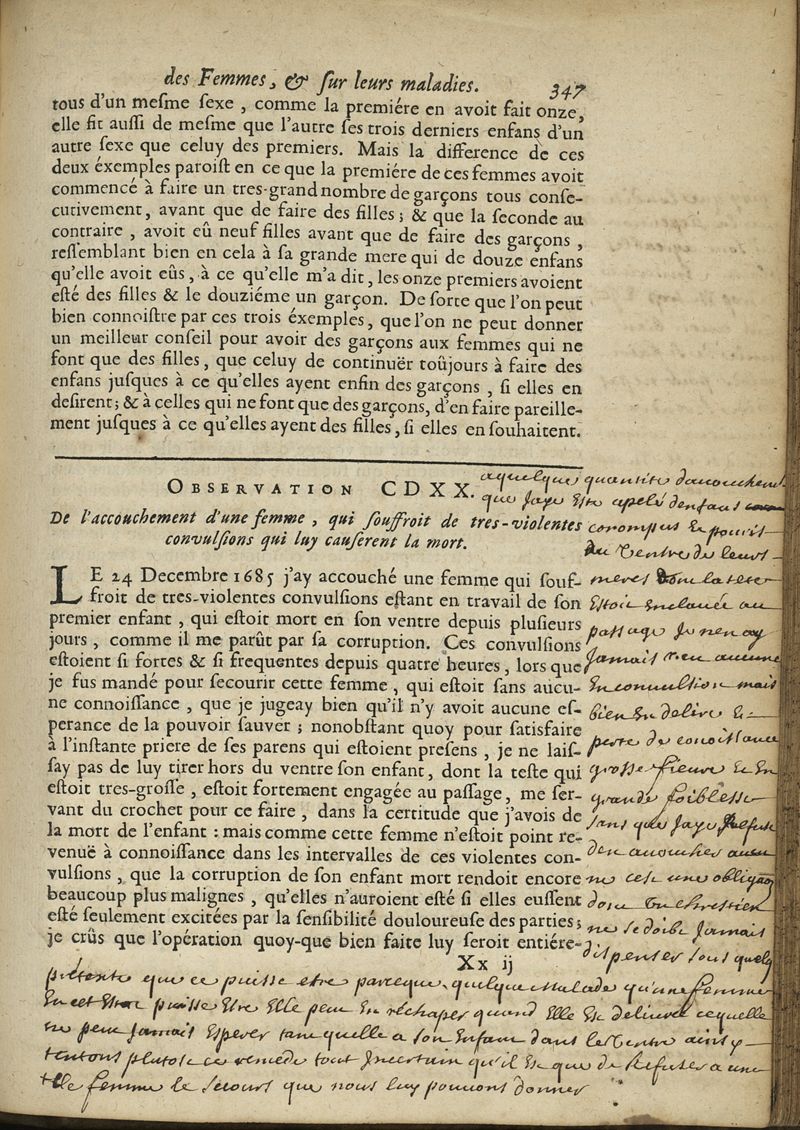 des Femmes, & ſur leurs maladies. 347
tous d'un meſme ſexe, comme la premiére en avoit fait onze,
elle fit auſſi de meſme que l'autre ſes trois derniers enfans d'un
autre ſexe que celuy des premiers. Mais la difference de ces
deux éxemples paroiſt en ce que la premiére de ces femmes avoit
commencé à faire un tres-grand nombre de garçons tous conſe-
cutivement, avant que de faire des filles; & que la ſeconde au
contraire, avoit eû neuf filles avant que de faire des garçons,
reſſemblant bien en cela à ſa grande mere qui de douze enfans
qu'elle avoit eûs, à ce qu'elle m'a dit, les onze premiers avoient
eſté des filles & le douziéme un garçon. De ſorte que l'on peut
bien connoiſtre par ces trois éxemples, que l'on ne peut donner
un meilleur conſeil pour avoir des garçons aux femmes qui ne
font que des filles, que celuy de continuër toûjours à faire des
enfans juſques à ce qu'elles ayent enfin des garçons, ſi elles en
deſirent; & à celles qui ne font que des garçons, d'en faire pareille-
ment juſques à ce qu'elles ayent des filles, ſi elles en ſouhaitent.
OBSERVATION CDXX.
De l'accouchement d'une femme, qui ſouffroit de tres-violentes
convulſions qui luy cauſerent la mort.
LE 24 Decembre 1685 j'ay accouché une femme qui ſouf-
froit de tres-violentes convulſions eſtant en travail de ſon
premier enfant, qui eſtoit mort en ſon ventre depuis pluſieurs
jours, comme il me parût par ſa corruption. Ces convulſions
eſtoient ſi fortes & ſi frequentes depuis quatre heures, lors que
je fus mandé pour ſecourir cette femme, qui eſtoit ſans aucu-
ne connoiſſance, que je jugeay bien qu'il n'y avoit aucune eſ-
perance de la pouvoir ſauver; nonobſtant quoy pour ſatisfaire
à l'inſtante priere de ſes parens qui eſtoient preſens, je ne laiſ-
ſay pas de luy tirer hors du ventre ſon enfant, dont la teſte qui
eſtoit tres-groſſe, eſtoit fortement engagée au paſſage, me ſer-
vant du crochet pour ce faire, dans la certitude que j'avois de
la mort de l'enfant: mais comme cette femme n'eſtoit point re-
venuë à connoiſſance dans les intervalles de ces violentes con-
vulſions, que la corruption de ſon enfant mort rendoit encore
beaucoup plus malignes, qu'elles n'auroient eſté ſi elles euſſent
eſté ſeulement excitées par la ſenſibilité douloureuſe des parties;
je crûs que l'opération quoy-que bien faite luy ſeroit entiére-
Xx ij
aquelque quantite dacouchemens
que jaye este apelé denfans
corompus & pouris
du ventre de leurs
meres dont la teste
estoit enclavée au
passage je nen ay
jamais veu aucune
en convultion mais
bien en delire &
perte de conoissance
grosse fievre & en
grande foiblesse
sans que jaye refusé
den acoucher aucu
ne cest une obligaon
dont un chrestien
ne se doibt jamais
dispenser sous quelq
pretexte que ce puisse estre parceque quelque malade qu'une femme
en cet estat puisse estre elle peut en réchaper quand elle est delivrée ce quelle
ne peut jamais esperer tant quelle a son enfant dans le ventre ainsy
tentons plutost ce remede tout incertain qu'il est que de refuser a une
telle femme le secours que nous luy pouvons donner